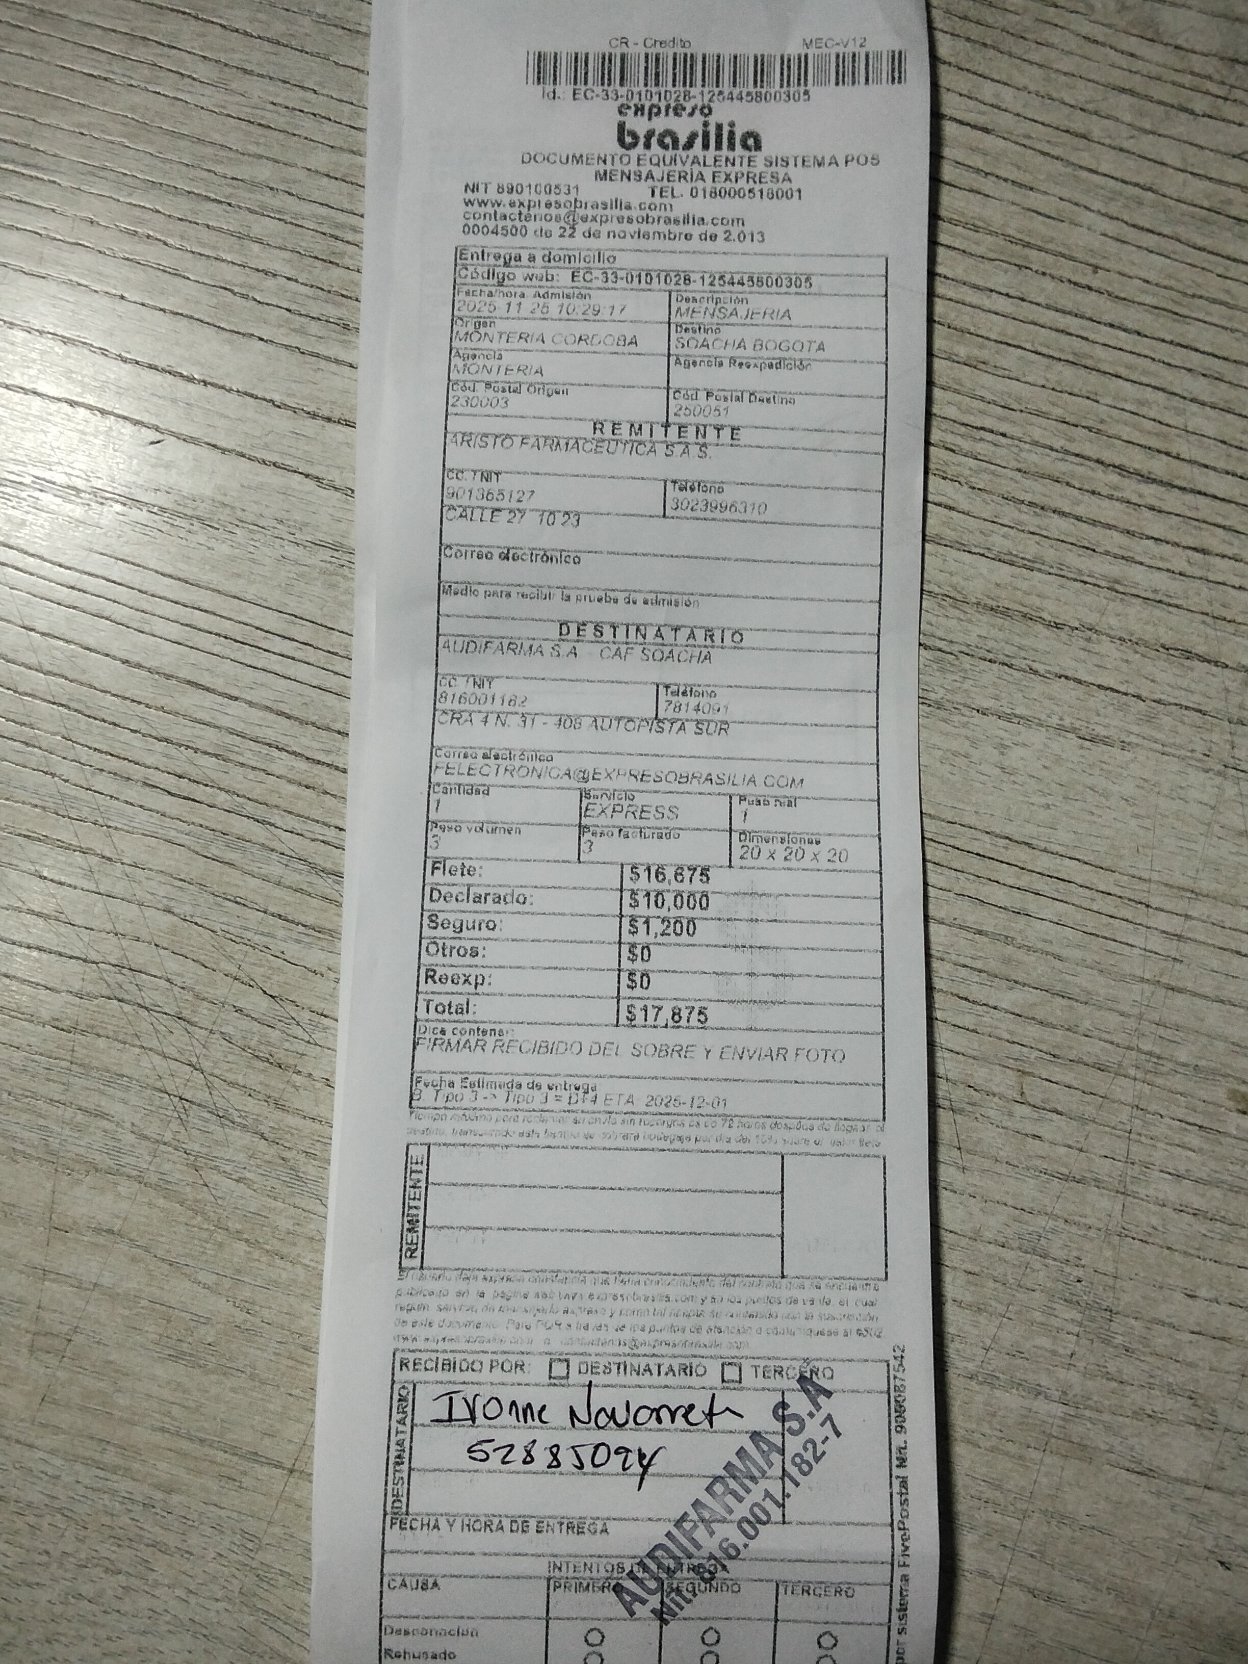 CR - Credito MEC-V12
Id.: EC-33-0101028-125445800305
expreso
brasilia
DOCUMENTO EQUIVALENTE SISTEMA POS
MENSAJERÍA EXPRESA
NIT 890100531 TEL. 018000518001
www.expresobrasilia.com
contactenos@expresobrasilia.com
0004500 de 22 de noviembre de 2.013
Entrega a domicilio
Código web: EC-33-0101028-125445800305
Fecha/hora Admisión Descripción
2025-11-26 10:29:17 MENSAJERIA
Origen Destino
MONTERIA CORDOBA SOACHA BOGOTA
Agencia Agencia Reexpedición
MONTERIA
Cód. Postal Origen Cód. Postal Destino
230003 250051
REMITENTE
ARISTO FARMACEUTICA S.A.S.
CC. / NIT Teléfono
901365127 3023996310
CALLE 27 10 23
Correo electrónico
Medio para recibir la prueba de admisión
DESTINATARIO
AUDIFARMA S.A - CAF SOACHA
CC. / NIT Teléfono
816001182 7814091
CRA 4 N. 31 - 408 AUTOPISTA SUR
Correo electrónico
FELECTRONICA@EXPRESOBRASILIA.COM
Cantidad Servicio Peso real
1 EXPRESS 1
Peso volumen Peso facturado Dimensiones
3 3 20 x 20 x 20
Flete: $16,675
Declarado: $10,000
Seguro: $1,200
Otros: $0
Reexp: $0
Total: $17,875
Dice contener:
FIRMAR RECIBIDO DEL SOBRE Y ENVIAR FOTO
Fecha Estimada de entrega
B. Tipo 3 -> Tipo 3 = D+4 ETA 2025-12-01
REMITENTE
RECIBIDO POR: DESTINATARIO TERCERO
DESTINATARIO
Ivonne Navarrete
52885094
AUDIFARMA S.A
Nit. 816.001.182-7
FECHA Y HORA DE ENTREGA
INTENTOS DE ENTREGA
CAUSA PRIMERO SEGUNDO TERCERO
Desconocido
Rehusado
por sistema FivePostal Nit. 900087542